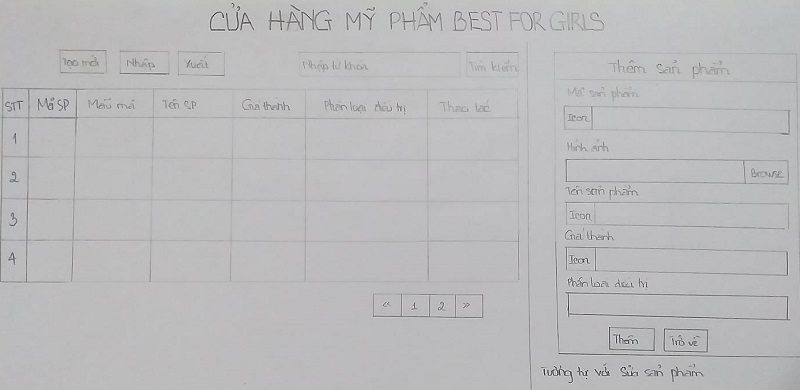 CỬA HÀNG MỸ PHẨM BEST FOR GIRLS
Tạo mới Nhập Xuất Nhập từ khóa Tìm kiếm
STT Mã SP Mẫu mã Tên SP Giá thành Phân loại điều trị Thao tác
1
2
3
4
« 1 2 »
Thêm sản phẩm
Mã sản phẩm
Icon
Hình ảnh
Browse
Tên sản phẩm
Icon
Giá thành
Icon
Phân loại điều trị
Thêm Trở về
Tương tự với Sửa sản phẩm